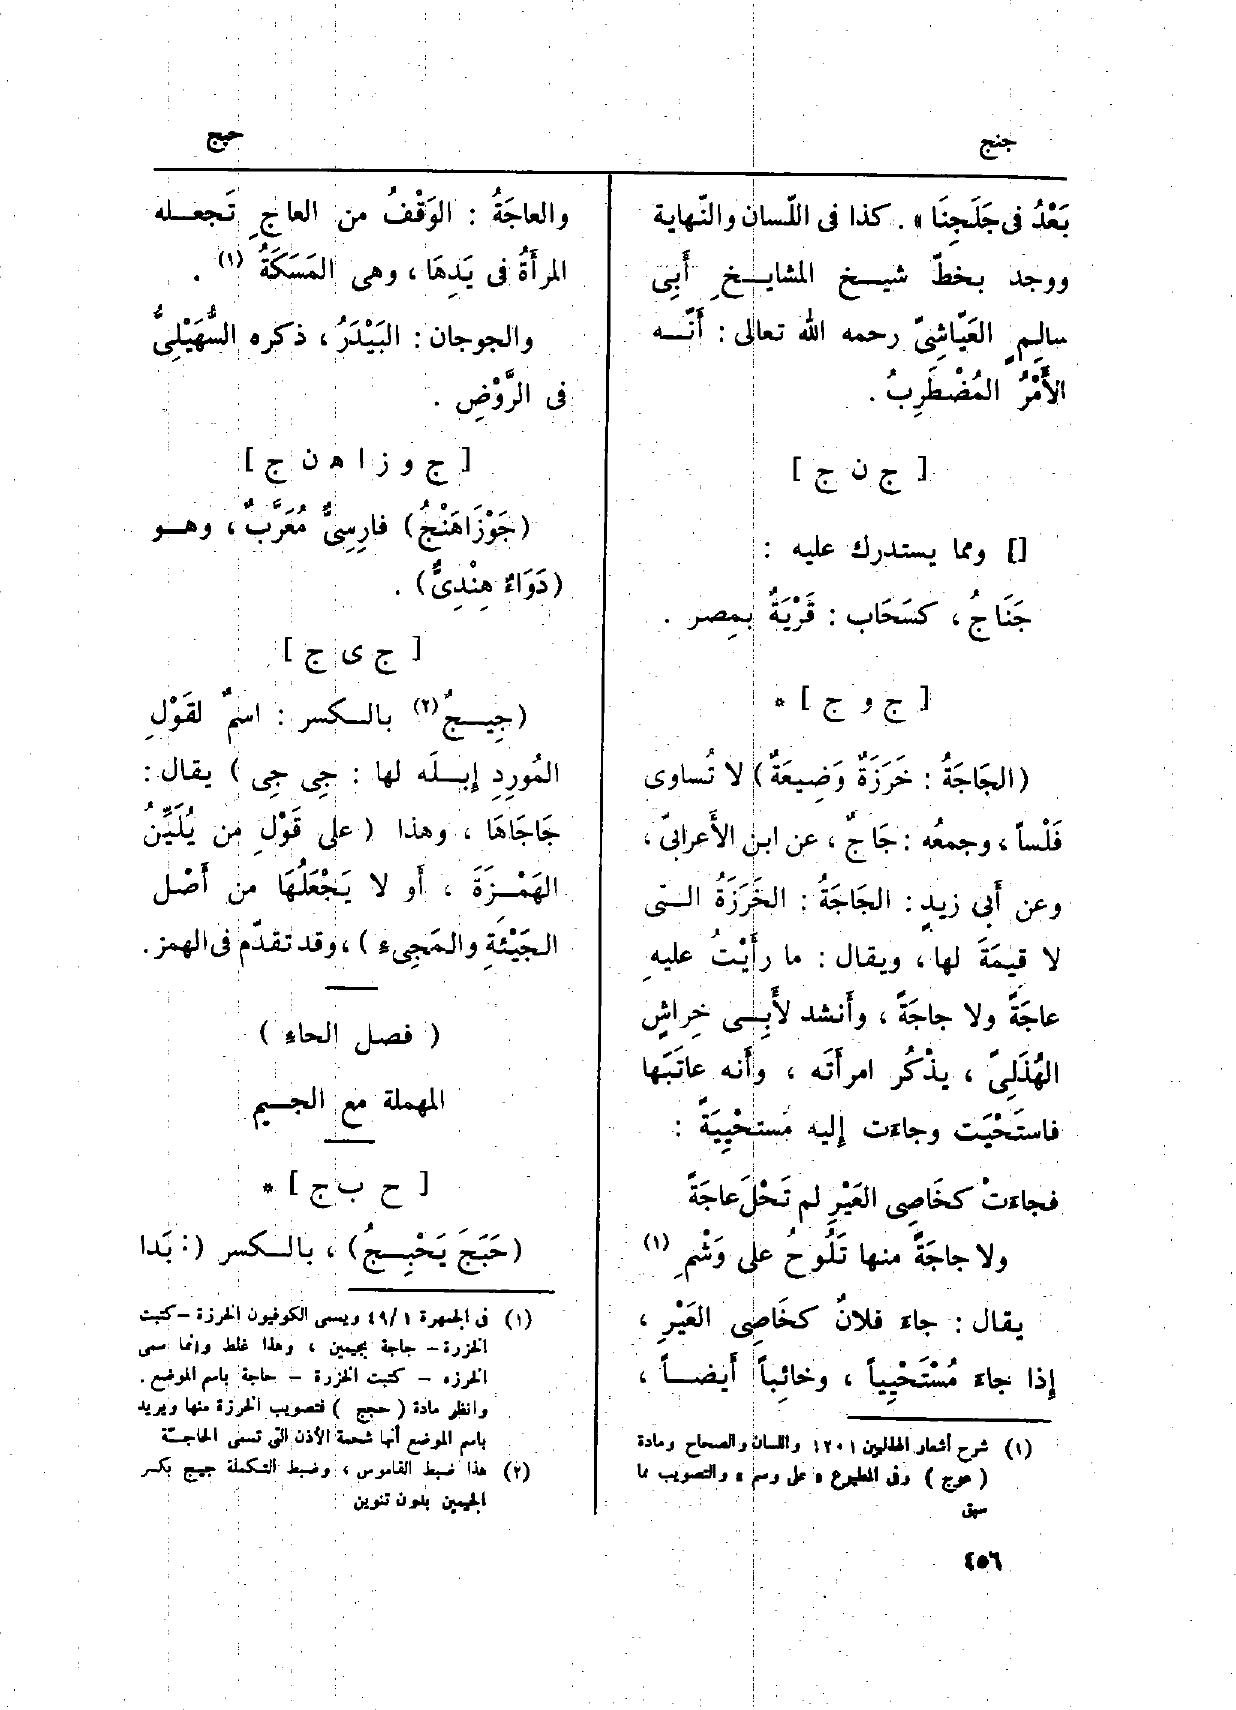 جنج
حبج
بَعْدُ فى جَلَجِنَا » . كذا فى اللّسان والنّهاية
ووجد بخطّ شيخ المشايخِ أَبِى
سالِمٍ العَيّاشِىّ رحمه الله تعالى : أَنّه
الأَمْرُ المُضْطَرِبُ .
[ ج ن ج ]
[] ومما يستدرك عليه :
جَنَاجُ ، كسَحَاب : قَرْيَةٌ بمِصر .
[ ج و ج ] *
(الجَاجَةُ : خَرَزَةٌ وَضِيعَةٌ) لا تُساوى
فَلْساً ، وجمعُه : جَاجٌ ، عن ابن الأَعرابىّ ،
وعن أَبى زيدٍ : الجَاجَةُ : الخَرَزَةُ الـتى
لا قيمَةَ لها ، ويقال : ما رأَيْتُ عليهِ
عاجَةً ولا جاجَةً ، وأَنشد لأَبِـى خِراشٍ
الهُذَلِىّ ، يذْكُر امرأَتَه ، وأَنه عاتَبَها
فاستَحْيَت وجاءَت إليه مُستحْيِيَةً :
فجاءَتْ كخَاصِى العَيْرِ لم تَحْلَ عاجَةً
ولا جاجَةً منها تَلُوحُ على وَشْمِ (١)
يقال : جاءَ فلانٌ كخَاصِى العَيْرِ ،
إذا جاءَ مُسْتَحْيِياً ، وخائباً أَيضـاً ،
(١) شرح أشعار الهذليين ١٢٠١ واللسان والصحاح ومادة
( عوج ) وفى المطبوع « على وسم » والتصويب مما
سبق
والعاجَةُ : الوَقْفُ من العاجِ تَجعـله
المرأَةُ فى يَدِهَا ، وهى المَسَكَةُ (١) .
والجوجان : البَيْدَرُ ، ذكره السُّهَيْلِىُّ
فى الرَّوْضِ .
[ ج و ز ا ه ن ج ]
(جَوْزَاهَنْجُ) فارِسِىٌّ مُعَرَّبٌ ، وهـو
(دَوَاءٌ هِنْدِىٌّ) .
[ ج ى ج ]
(جِيـجٌ (٢) بالـكسر : اسمٌ لقَوْلِ
المُورِدِ إبـلَه لها : جِى جِى ) يقال :
جَاجَاهَا ، وهذا ( على قَوْلِ من يُلَيِّنُ
الهَمْـزَةَ ، أَو لا يَجْعَلُهَا من أَصْل
الجَيْئَةِ والمَجِىءِ ) ، وقد تقدّم فى الهمز .
( فصل الحاء )
المهملة مع الجـيم
[ ح ب ج ] *
(حَبَجَ يَحْبِـجُ) ، بالـكسر (: بَدا
(١) فى الجمهرة ١ /٤٩ ويسمى الكوفيون الخرزة – كتبت
الخزرة – جاجة بجيمين ، وهذا غلط وإنما سمى
الخرزه – كتبت الخزرة – حاجة باسم الموضع .
وانظر مادة ( حجج ) فتصويب الخرزة منها ويريد
باسم الموضع أنها شحمة الأذن التى تسمى الحاجـة
(٢) هذا ضبط القاموس ، وضبط التكملة جيج بكـر
الجيمين بدون تنوين
٤٥٦